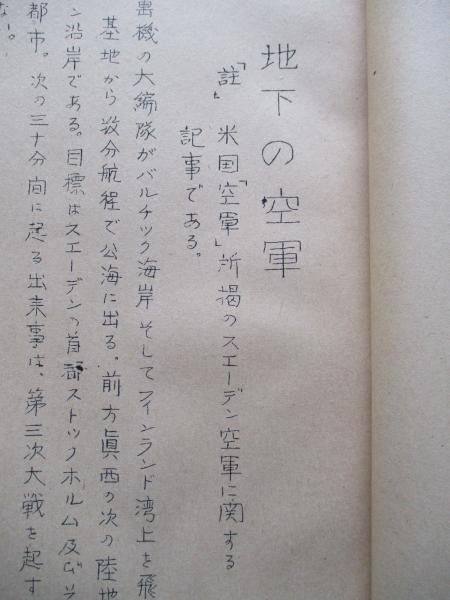 地下の空軍
「註」 米国「空軍」所掲のスエーデン空軍に関する
記事である。
機の大編隊がバルチック海岸そしてフインランド湾上を飛
基地から数分航程で公海に出る。前方眞西の次の陸地
ン沿岸である。目標はスエーデンの首都ストックホルム及びそ
都市。次の三十分間に起る出来事は、第三次大戦を起す
ない。